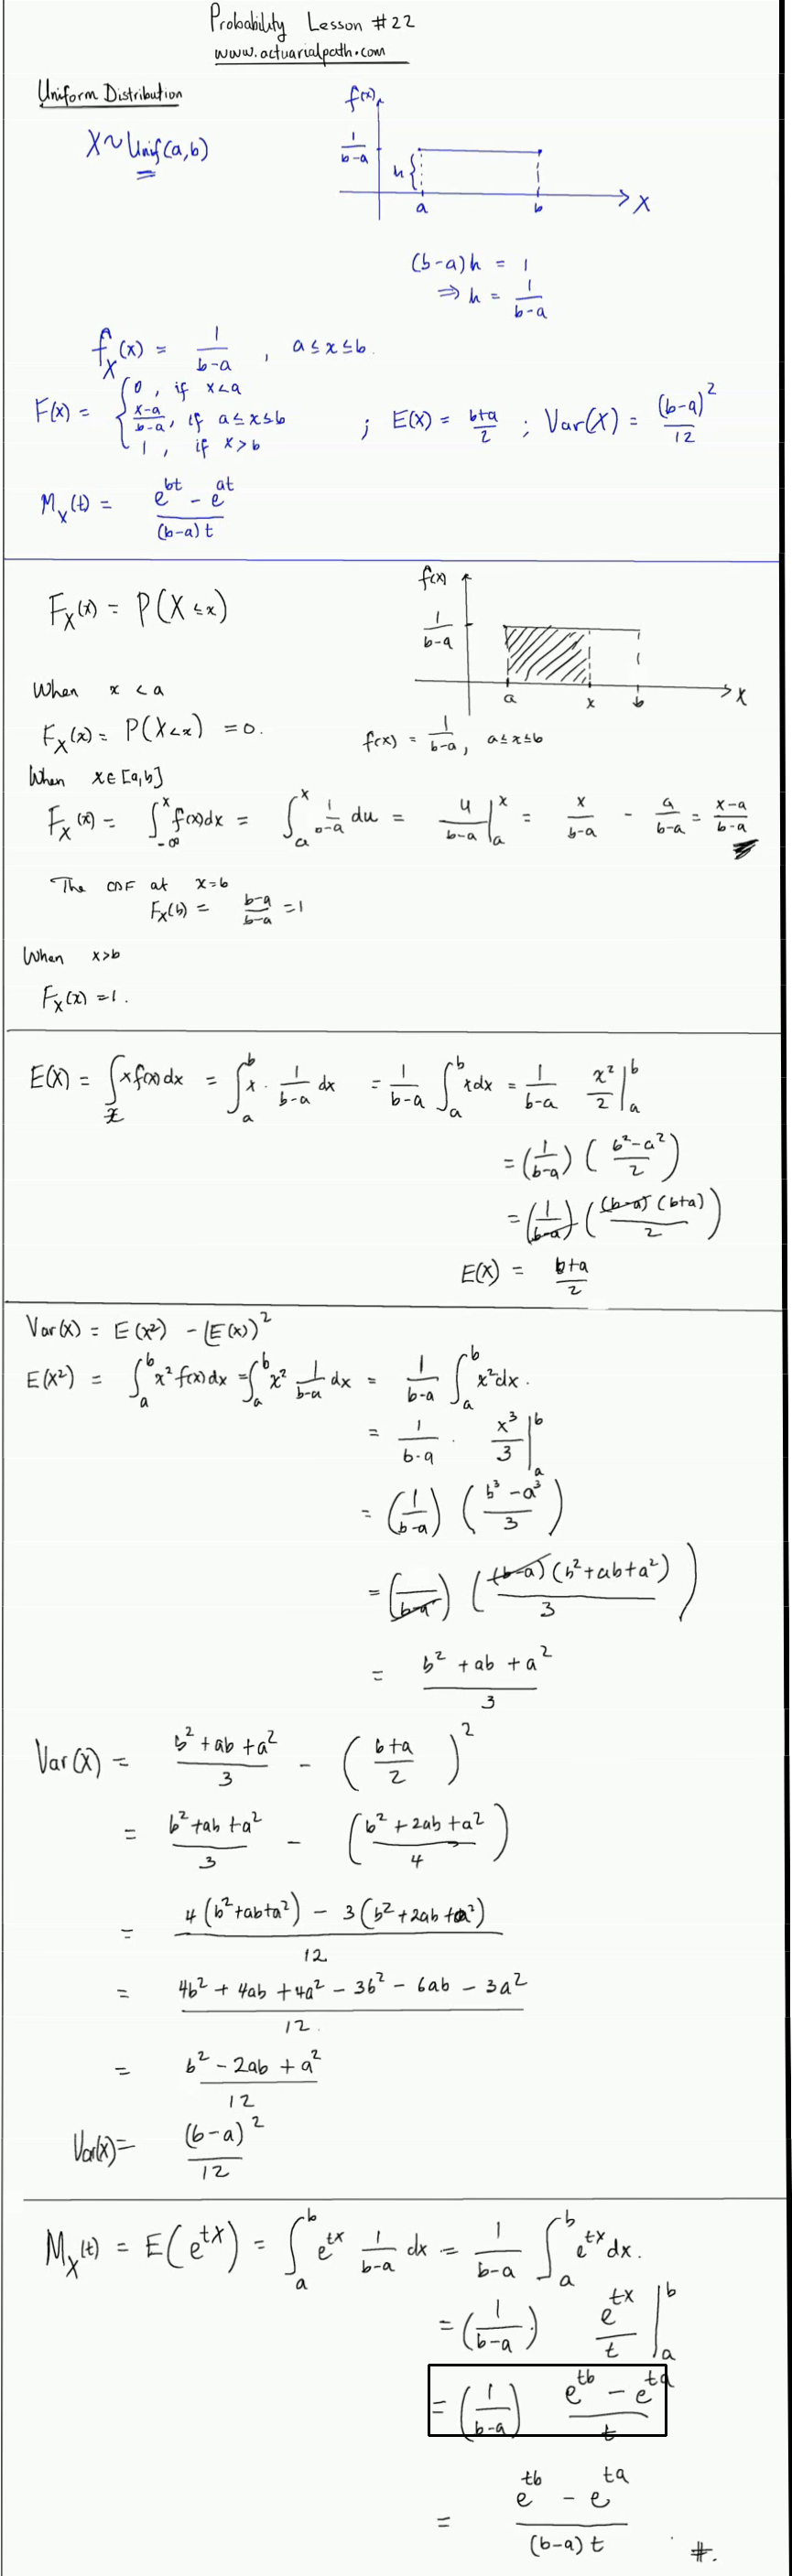 Probability Lesson #22
www.actuarialpath.com
Uniform Distribution
X ~ Unif(a,b)
f(x)
1/(b-a)
h{
a b X
(b-a)h = 1
⇒ h = 1/(b-a)
f_X(x) = 1/(b-a) , a ≤ x ≤ b.
F(x) = { 0, if x<a
(x-a)/(b-a), if a ≤ x ≤ b
1, if x>b
; E(X) = (b+a)/2 ; Var(X) = (b-a)^2/12
M_X(t) = (e^{bt} - e^{at})/((b-a)t)
F_X(x) = P(X ≤ x)
f(x)
1/(b-a)
a x b X
When x < a
F_X(x) = P(X<x) = 0.
f(x) = 1/(b-a), a ≤ x ≤ b
When x ∈ [a,b]
F_X(x) = ∫_{-∞}^{x} f(x)dx = ∫_a^x 1/(b-a) du = u/(b-a) |_a^x = x/(b-a) - a/(b-a) = (x-a)/(b-a)
The CDF at x=b
F_X(b) = (b-a)/(b-a) = 1
When x>b
F_X(x) = 1.
E(X) = ∫_x x f(x) dx = ∫_a^b x · 1/(b-a) dx = 1/(b-a) ∫_a^b x dx = 1/(b-a) x^2/2 |_a^b
= (1/(b-a)) ((b^2-a^2)/2)
= (1/(b-a)) ((b-a)(b+a)/2)
E(X) = (b+a)/2
Var(X) = E(X^2) - (E(X))^2
E(X^2) = ∫_a^b x^2 f(x) dx = ∫_a^b x^2 1/(b-a) dx = 1/(b-a) ∫_a^b x^2 dx.
= 1/(b-a) · x^3/3 |_a^b
= (1/(b-a)) ((b^3 - a^3)/3)
= (1/(b-a)) ((b-a)(b^2+ab+a^2)/3)
= (b^2 + ab + a^2)/3
Var(X) = (b^2+ab+a^2)/3 - ((b+a)/2)^2
= (b^2+ab+a^2)/3 - ((b^2+2ab+a^2)/4)
= (4(b^2+ab+a^2) - 3(b^2+2ab+a^2))/12
= (4b^2 + 4ab + 4a^2 - 3b^2 - 6ab - 3a^2)/12.
= (b^2 - 2ab + a^2)/12
Var(X) = (b-a)^2/12
M_X(t) = E(e^{tX}) = ∫_a^b e^{tx} 1/(b-a) dx = 1/(b-a) ∫_a^b e^{tx} dx.
= (1/(b-a)) e^{tx}/t |_a^b
= (1/(b-a)) (e^{tb} - e^{ta})/t
= (e^{tb} - e^{ta})/((b-a)t) #.